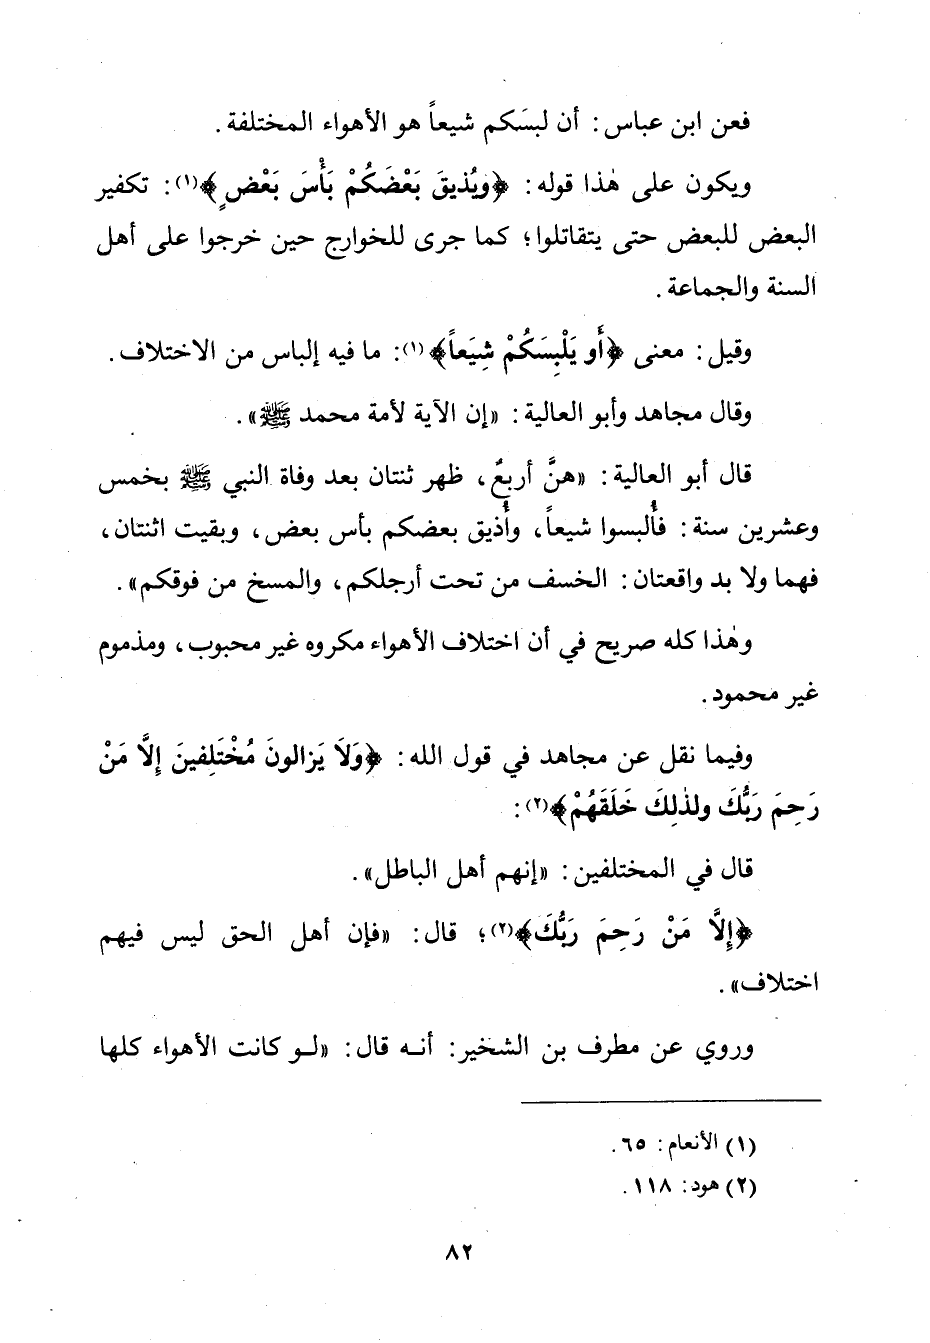 فعن ابن عباس: أن لبسَكم شيعاً هو الأهواء المختلفة.
ويكون على هٰذا قوله: ﴿ويُذيقَ بَعْضَكُمْ بَأْسَ بَعْضٍ﴾(١): تكفير
البعض للبعض حتى يتقاتلوا؛ كما جرى للخوارج حين خرجوا على أهل
السنة والجماعة.
وقيل: معنى ﴿أَو يَلْبِسَكُمْ شِيَعاً﴾(١): ما فيه إلباس من الاختلاف.
وقال مجاهد وأبو العالية: «إن الآية لأمة محمد ﷺ».
قال أبو العالية: «هنَّ أربعٌ، ظهر ثنتان بعد وفاة النبي ﷺ بخمس
وعشرين سنة: فأُلبسوا شيعاً، وأُذيق بعضكم بأس بعض، وبقيت اثنتان،
فهما ولا بد واقعتان: الخسف من تحت أرجلكم، والمسخ من فوقكم».
وهٰذا كله صريح في أن اختلاف الأهواء مكروه غير محبوب، ومذموم
غير محمود.
وفيما نقل عن مجاهد في قول الله: ﴿وَلَا يَزالونَ مُخْتَلِفينَ إِلَّا مَنْ
رَحِمَ رَبُّكَ ولذٰلِكَ خَلَقَهُمْ﴾(٢):
قال في المختلفين: «إنهم أهل الباطل».
﴿إِلَّا مَنْ رَحِمَ رَبُّكَ﴾(٢)؛ قال: «فإن أهل الحق ليس فيهم
اختلاف».
وروي عن مطرف بن الشخير: أنه قال: «لو كانت الأهواء كلها
(١) الأنعام: ٦٥.
(٢) هود: ١١٨.
٨٢